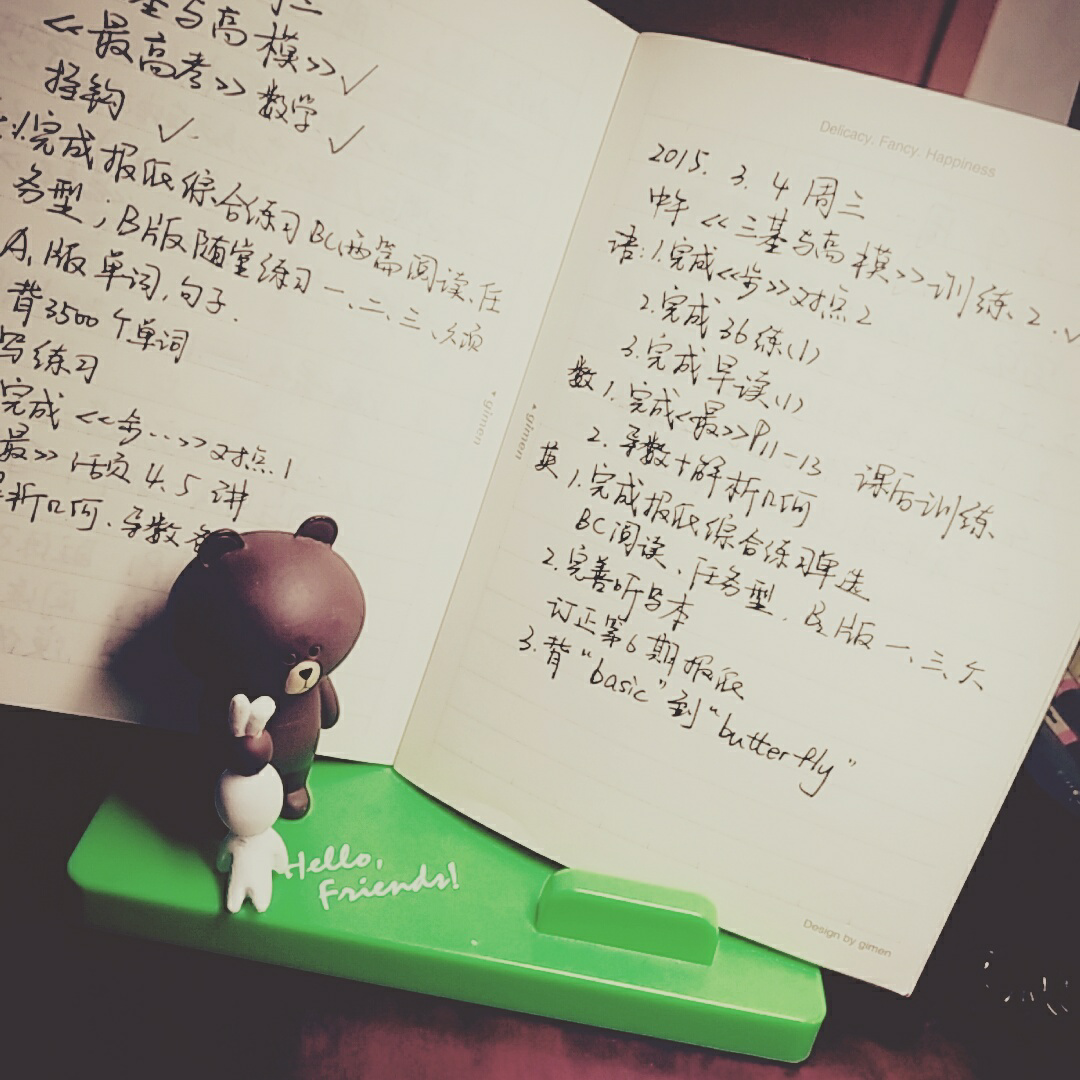 基与高模>>✓
<<最高考>>数学 ✓
✓
完成报纸综合练习BC两篇阅读、任
务型；B1版随堂练习一、二、三、六项
A1版单词，句子.
背3500个单词
写练习
完成<<步…>>对点1
最>>活页4.5讲
解析几何.导数各
gimen
Delicacy, Fancy, Happiness
2015. 3. 4 周三
中午<<三基与高模>>训练2.✓
语:1.完成<<步>>对点2
2.完成36练(1)
3.完成早读(1)
数1.完成<最>>P11-13 课后训练
2.导数+解析几何
英1.完成报纸综合练习单选
BC阅读、任务型.B2版一、三、六
2.完善听写本
订正第6期报纸
3.背“basic”到“butterfly”
gimen
Hello,
Friends!
Design by gimen